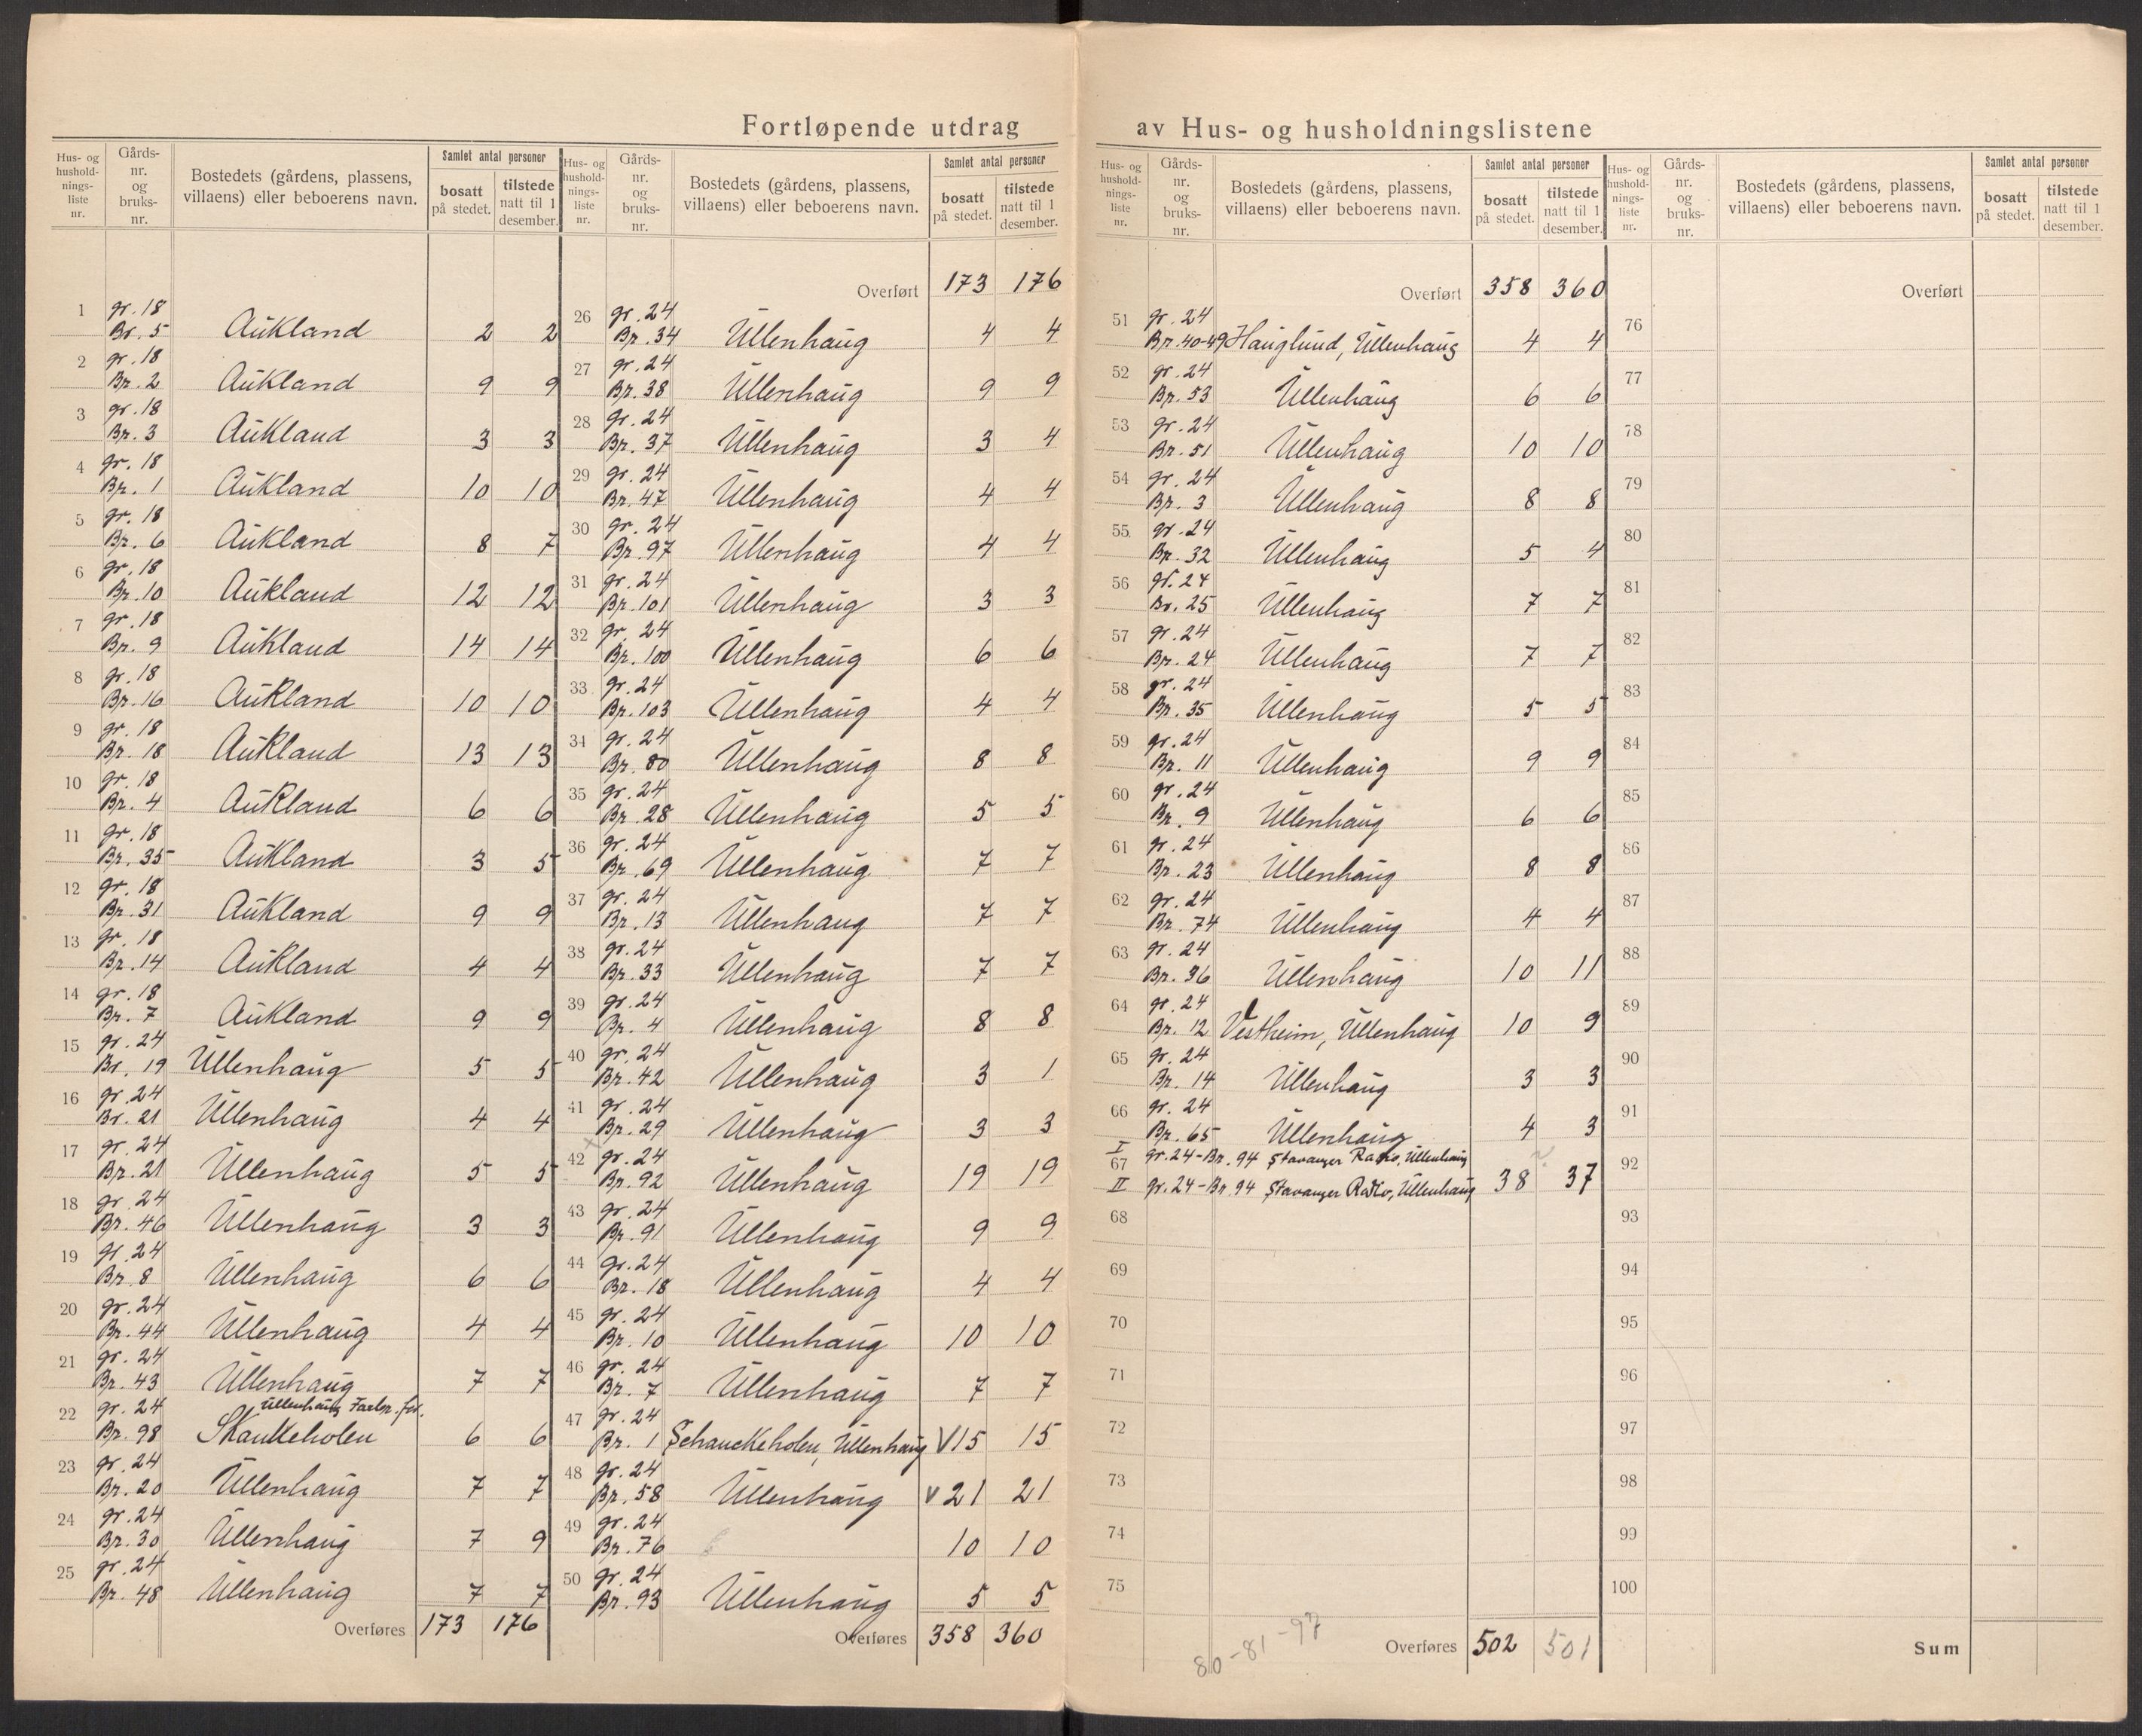 Fortløpende utdrag av Hus- og husholdningslistene
Hus- og hushold- nings- liste nr. | Gårds- nr. og bruks- nr. | Bostedets (gårdens, plassens, villaens) eller beboerens navn. | Samlet antal personer | bosatt på stedet. | tilstede natt til 1 desember.
1 gr. 18 Br. 5 Aukland 2 2
2 gr. 18 Br. 2 Aukland 9 9
3 gr. 18 Br. 3 Aukland 3 3
4 gr. 18 Br. 1 Aukland 10 10
5 gr. 18 Br. 6 Aukland 8 7
6 gr. 18 Br. 10 Aukland 12 12
7 gr. 18 Br. 9 Aukland 14 14
8 gr. 18 Br. 16 Aukland 10 10
9 gr. 18 Br. 18 Aukland 13 13
10 gr. 18 Br. 4 Aukland 6 6
11 gr. 18 Br. 35 Aukland 3 5
12 gr. 18 Br. 31 Aukland 9 9
13 gr. 18 Br. 14 Aukland 4 4
14 gr. 18 Br. 7 Aukland 9 9
15 gr. 24 Br. 19 Ullenhaug 5 5
16 gr. 24 Br. 21 Ullenhaug 4 4
17 gr. 24 Br. 21 Ullenhaug 5 5
18 gr. 24 Br. 46 Ullenhaug 3 3
19 gr. 24 Br. 8 Ullenhaug 6 6
20 gr. 24 Br. 44 Ullenhaug 4 4
21 gr. 24 Br. 43 Ullenhaug 7 7
22 gr. 24 Ullenhaug
Br. 98 Skankeholen 6 6
23 gr. 24 Br. 20 Ullenhaug 7 7
24 gr. 24 Br. 30 Ullenhaug 7 9
25 gr. 24 Br. 48 Ullenhaug 7 7
Overføres 173 176
Hus- og hushold- nings- liste nr. | Gårds- nr. og bruks- nr. | Bostedets (gårdens, plassens, villaens) eller beboerens navn. | Samlet antal personer | bosatt på stedet. | tilstede natt til 1 desember.
Overført 173 176
26 gr. 24 Br. 34 Ullenhaug 4 4
27 gr. 24 Br. 38 Ullenhaug 9 9
28 gr. 24 Br. 37 Ullenhaug 3 4
29 gr. 24 Br. 47 Ullenhaug 4 4
30 gr. 24 Br. 97 Ullenhaug 4 4
31 gr. 24 Br. 101 Ullenhaug 3 3
32 gr. 24 Br. 100 Ullenhaug 6 6
33 gr. 24 Br. 103 Ullenhaug 4 4
34 gr. 24 Br. 80 Ullenhaug 8 8
35 gr. 24 Br. 28 Ullenhaug 5 5
36 gr. 24 Br. 69 Ullenhaug 7 7
37 gr. 24 Br. 13 Ullenhaug 7 7
38 gr. 24 Br. 33 Ullenhaug 7 7
39 gr. 24 Br. 4 Ullenhaug 8 8
40 gr. 24 Br. 42 Ullenhaug 3 1
41 gr. 24 Br. 29 Ullenhaug 3 3
42 gr. 24 Br. 92 Ullenhaug 19 19
43 gr. 24 Br. 91 Ullenhaug 9 9
44 gr. 24 Br. 18 Ullenhaug 4 4
45 gr. 24 Br. 10 Ullenhaug 10 10
46 gr. 24 Br. 7 Ullenhaug 7 7
47 gr. 24 Br. 1 Schanckeholen, Ullenhaug V 15 15
48 gr. 24 Br. 58 Ullenhaug v 21 21
49 gr. 24 Br. 76 10 10
50 gr. 24 Br. 93 Ullenhaug 5 5
Overføres 358 360
Hus- og hushold- nings- liste nr. | Gårds- nr. og bruks- nr. | Bostedets (gårdens, plassens, villaens) eller beboerens navn. | Samlet antal personer | bosatt på stedet. | tilstede natt til 1 desember.
Overført 358 360
51 gr. 24 Br. 40-49 Hauglund, Ullenhaug 4 4
52 gr. 24 Br. 53 Ullenhaug 6 6
53 gr. 24 Br. 51 Ullenhaug 10 10
54 gr. 24 Br. 3 Ullenhaug 8 8
55 gr. 24 Br. 32 Ullenhaug 5 4
56 gr. 24 Br. 25 Ullenhaug 7 7
57 gr. 24 Br. 24 Ullenhaug 7 7
58 gr. 24 Br. 35 Ullenhaug 5 5
59 gr. 24 Br. 11 Ullenhaug 9 9
60 gr. 24 Br. 9 Ullenhaug 6 6
61 gr. 24 Br. 23 Ullenhaug 8 8
62 gr. 24 Br. 74 Ullenhaug 4 4
63 gr. 24 Br. 36 Ullenhaug 10 11
64 gr. 24 Br. 12 Vestheim, Ullenhaug 10 9
65 gr. 24 Br. 14 Ullenhaug 3 3
66 gr. 24 Br. 65 Ullenhaug 4 3
I gr. 24 - Br. 94 Stavanger Radio, Ullenhaug
67 38 37
II gr. 24 - Br. 94 Stavanger Radio, Ullenhaug
68
69
70
71
72
73
74
75
80-81-97
Overføres 502 501
Hus- og hushold- nings- liste nr. | Gårds- nr. og bruks- nr. | Bostedets (gårdens, plassens, villaens) eller beboerens navn. | Samlet antal personer | bosatt på stedet. | tilstede natt til 1 desember.
Overført
76
77
78
79
80
81
82
83
84
85
86
87
88
89
90
91
92
93
94
95
96
97
98
99
100
Sum